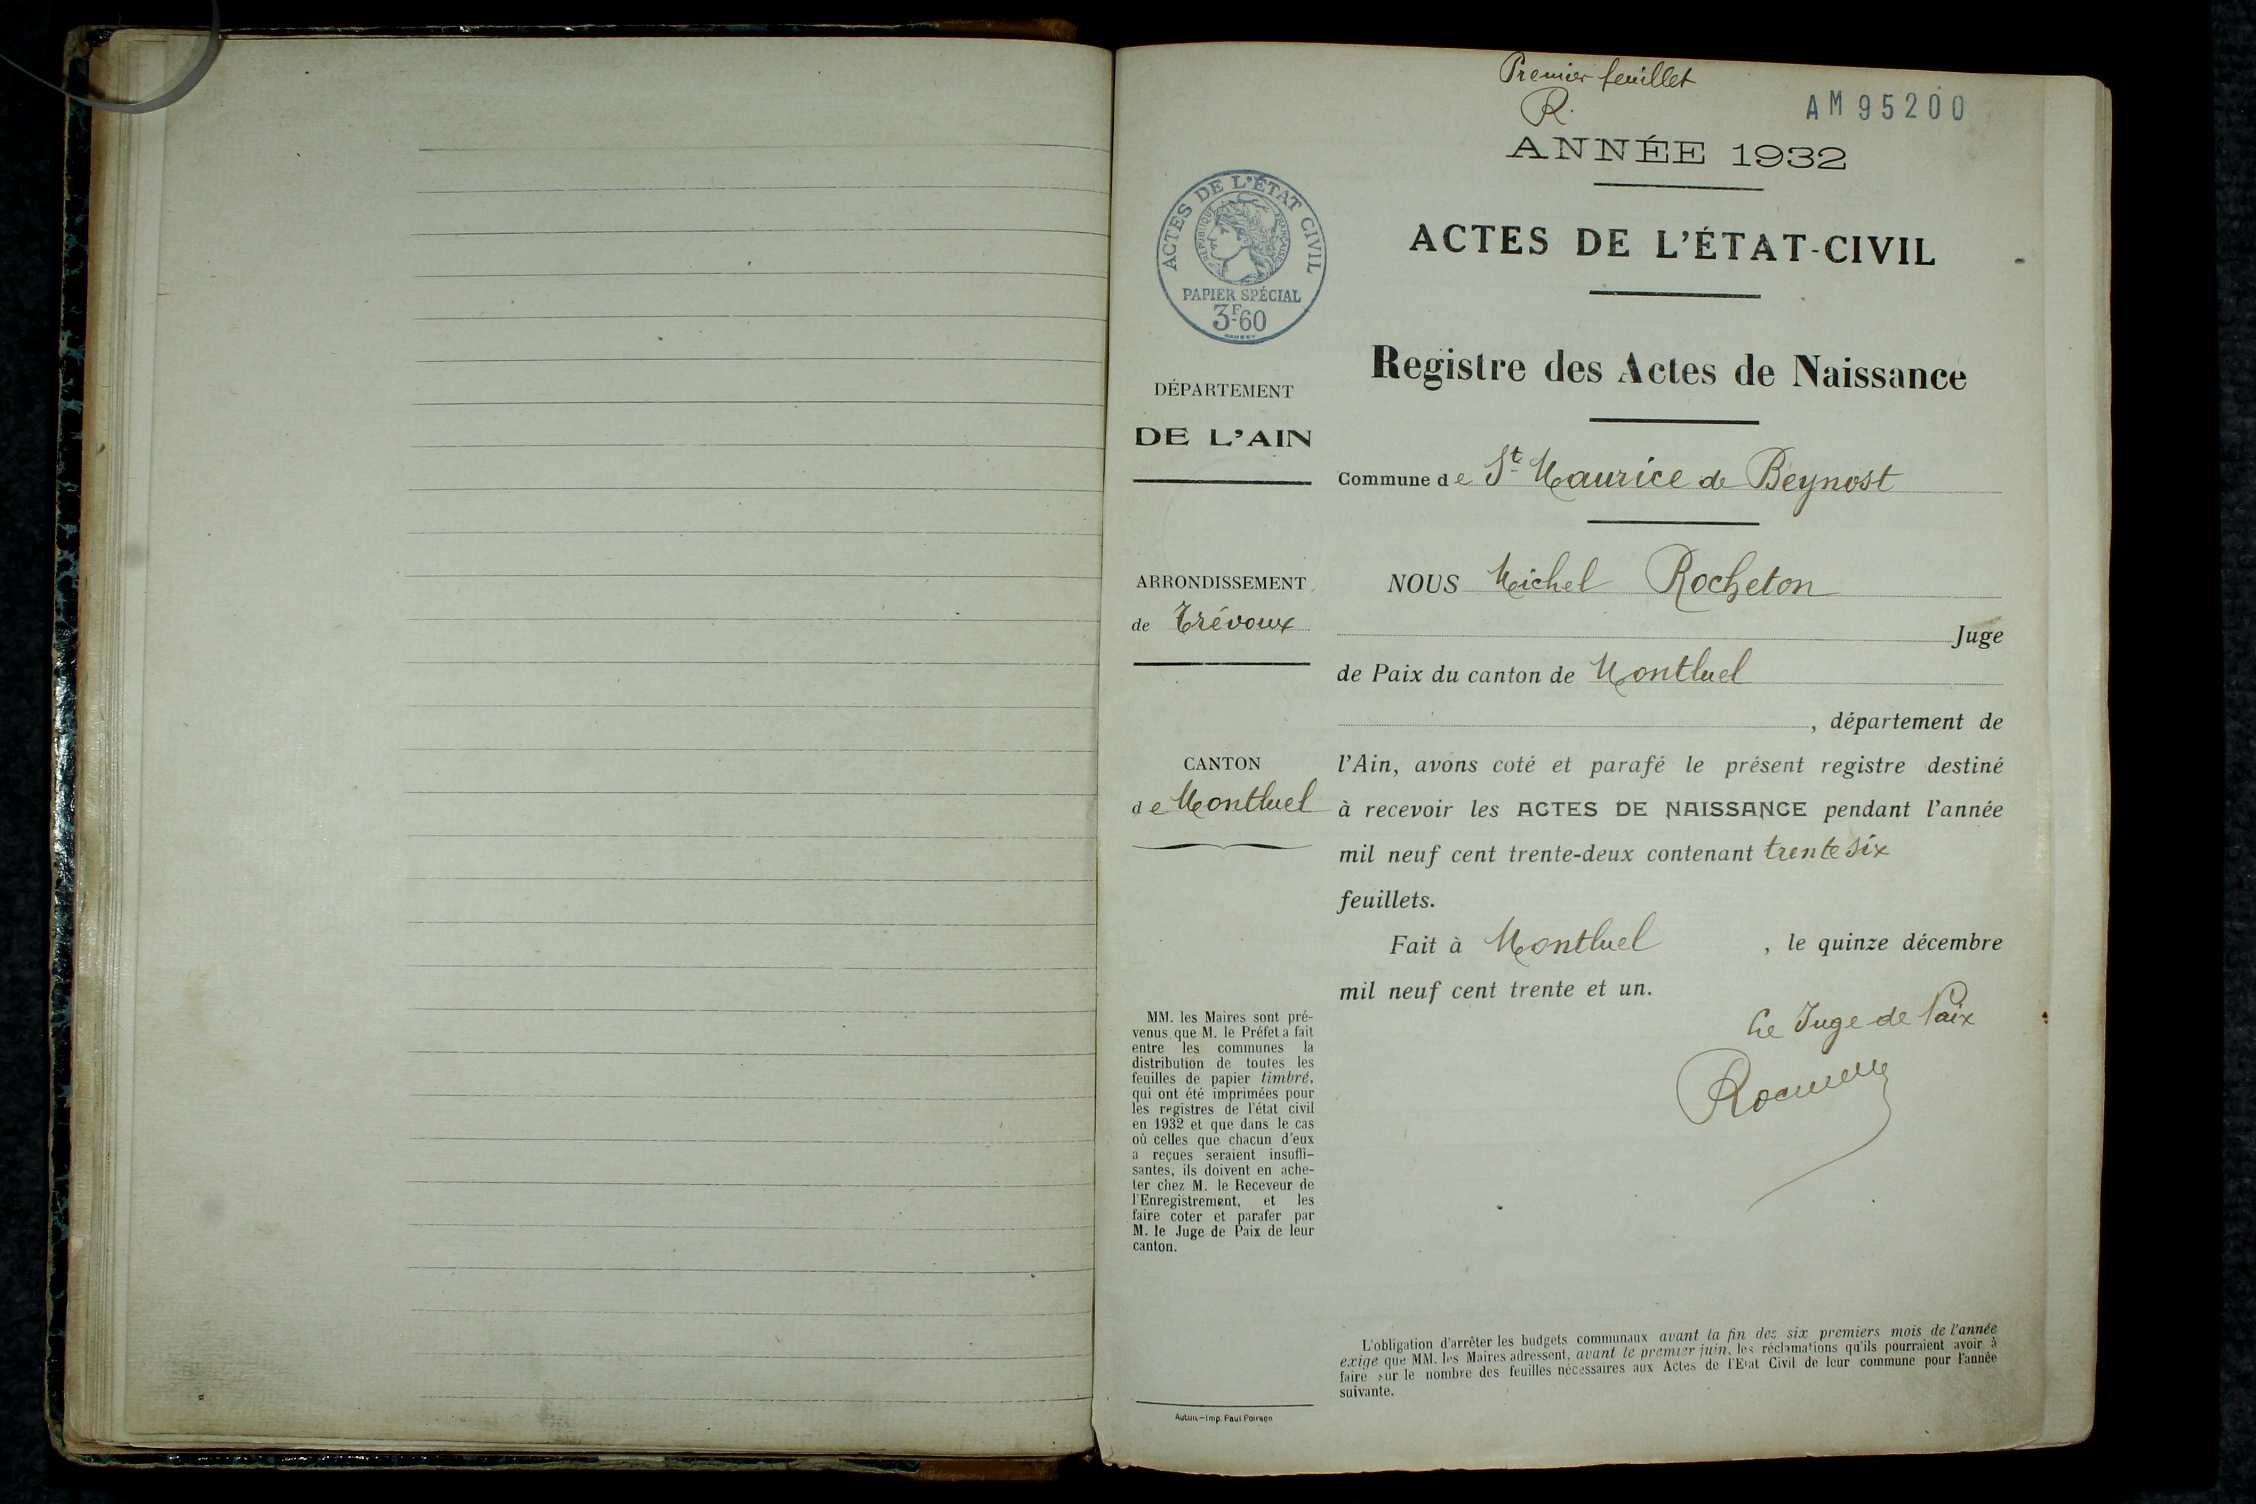 Premier feuillet
R.
AM95200
ANNÉE 1932
ACTES DE L'ÉTAT CIVIL
RÉPUBLIQUE FRANÇAISE
PAPIER SPÉCIAL
3F60
ACTES DE L'ÉTAT-CIVIL
Registre des Actes de Naissance
DÉPARTEMENT
DE L'AIN
Commune de St Maurice de Beynost
ARRONDISSEMENT
de Trévoux
CANTON
de Montluel
NOUS Michel Rocheton
Juge
de Paix du canton de Montluel
, département de
l'Ain, avons coté et parafé le présent registre destiné
à recevoir les ACTES DE NAISSANCE pendant l'année
mil neuf cent trente-deux contenant trente six
feuillets.
Fait à Montluel , le quinze décembre
mil neuf cent trente et un.
Le Juge de Paix
MM. les Maires sont pré-
venus que M. le Préfet a fait
entre les communes la
distribution de toutes les
feuilles de papier timbré,
qui ont été imprimées pour
les registres de l'état civil
en 1932 et que dans le cas
où celles que chacun d'eux
a reçues seraient insuffi-
santes, ils doivent en ache-
ter chez M. le Receveur de
l'Enregistrement, et les
faire coter et parafer par
M. le Juge de Paix de leur
canton.
L'obligation d'arrêter les budgets communaux avant la fin des six premiers mois de l'année
exige que MM. les Maires adressent, avant le premier juin, les réclamations qu'ils pourraient avoir à
faire sur le nombre des feuilles nécessaires aux Actes de l'Etat Civil de leur commune pour l'année
suivante.
Autun.—Imp. Paul Poirson